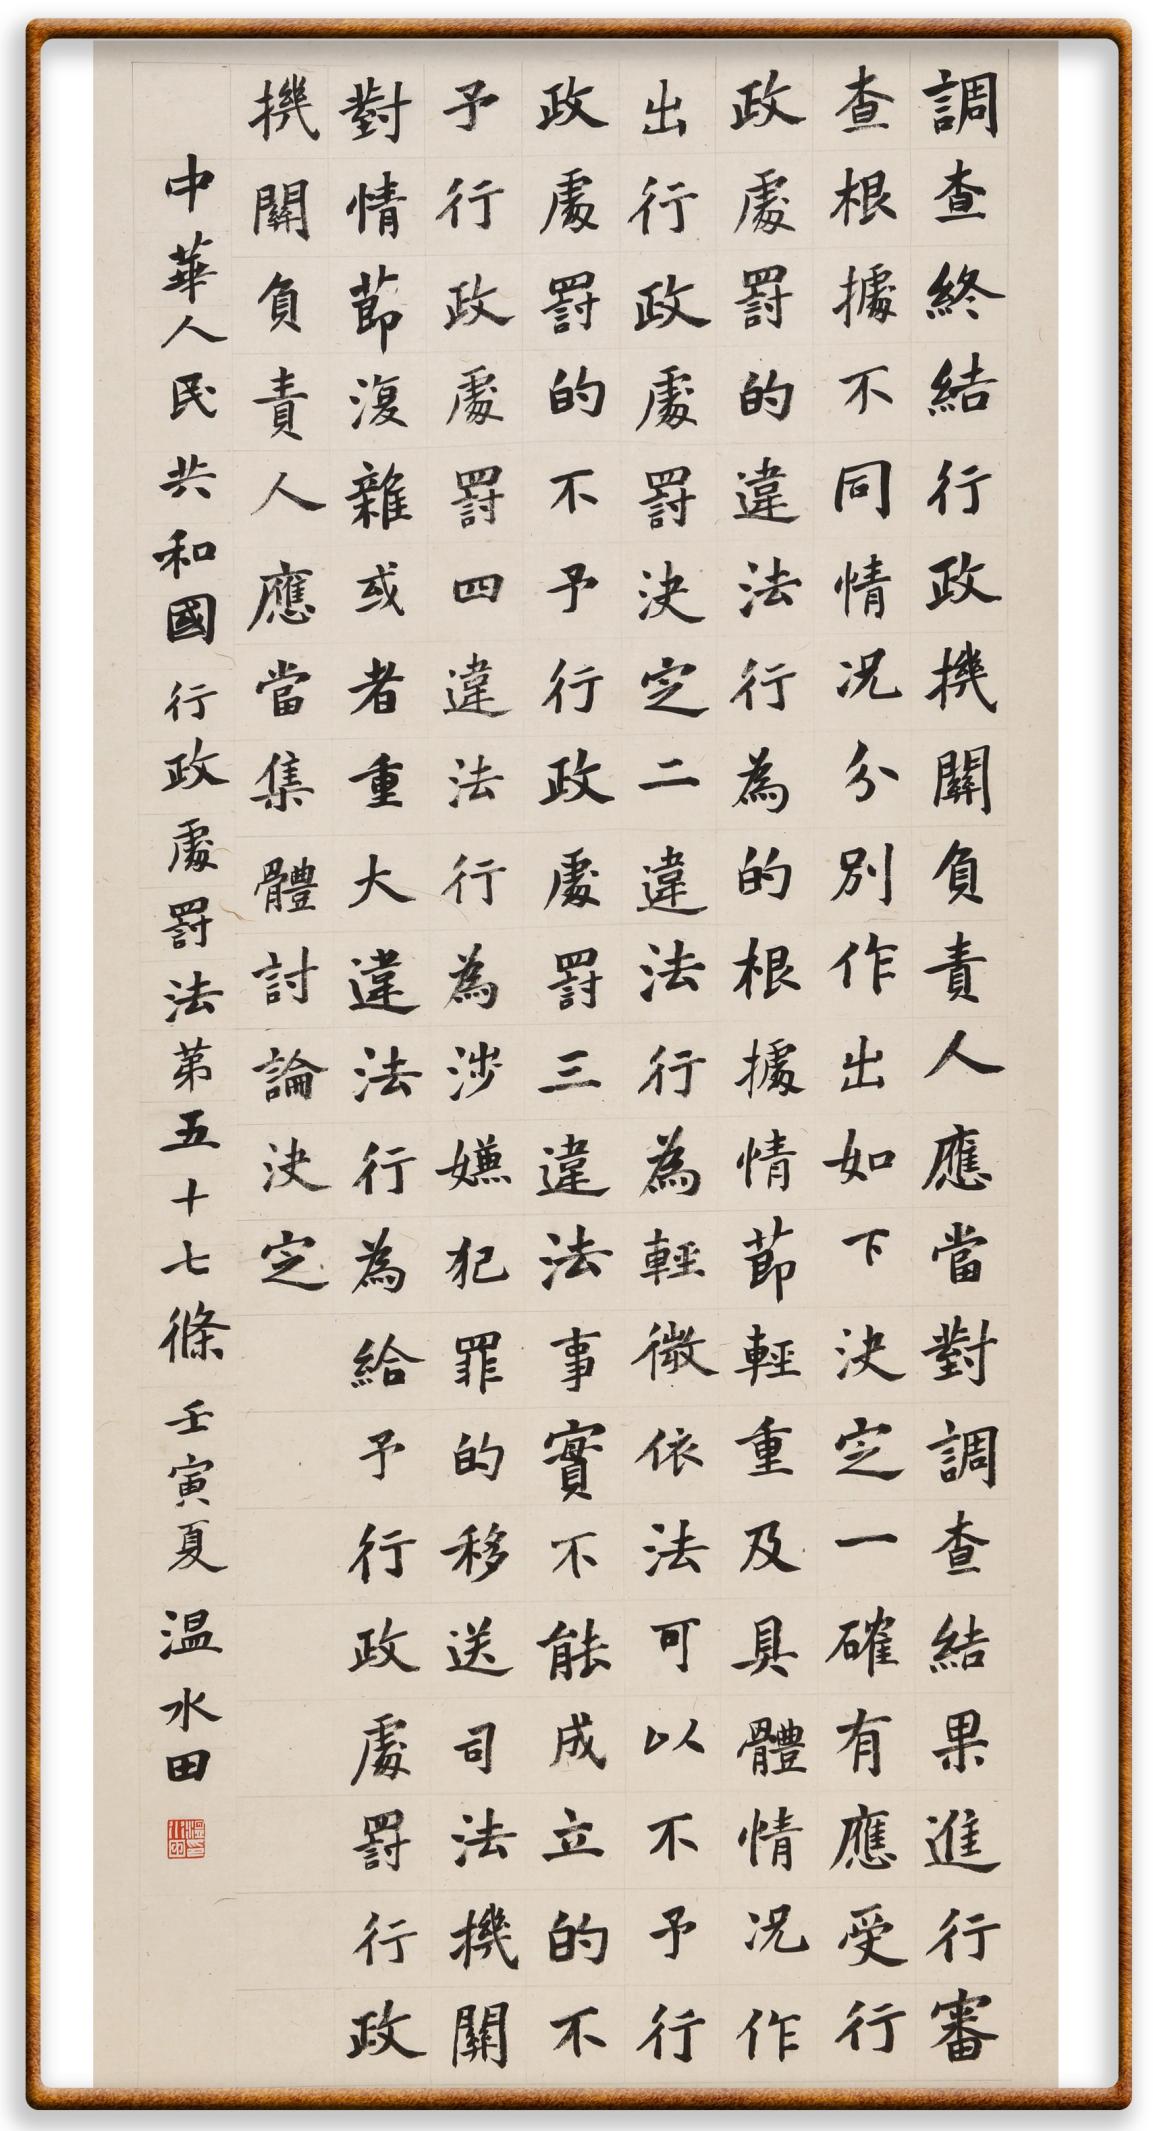 調查終結行政機關負責人應當對調查結果進行審
查根據不同情況分別作出如下決定一確有應受行
政處罰的違法行為的根據情節輕重及具體情況作
出行政處罰決定二違法行為輕微依法可以不予行
政處罰的不予行政處罰三違法事實不能成立的不
予行政處罰四違法行為涉嫌犯罪的移送司法機關
對情節復雜或者重大違法行為給予行政處罰行政
機關負責人應當集體討論決定
中華人民共和國行政處罰法第五十七條壬寅夏溫水田